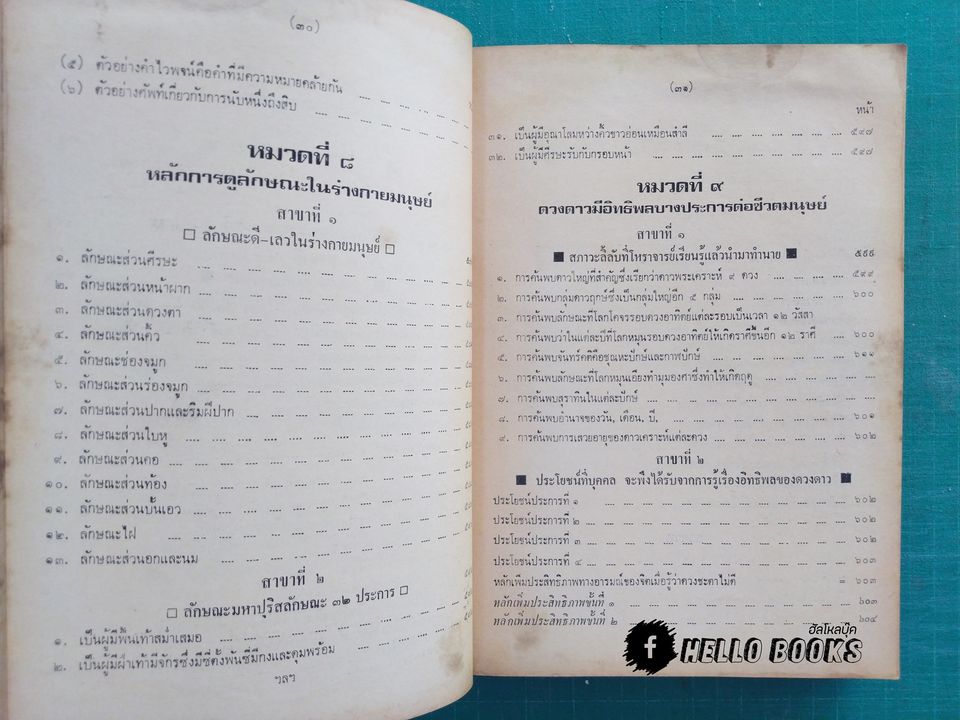 (๓๐)
(๕) ตัวอย่างคำไวพจน์คือคำที่มีความหมายคล้ายกัน .... .... .... ....
(๖) ตัวอย่างศัพท์เกี่ยวกับการนับหนึ่งถึงสิบ .... .... .... .... ....
หมวดที่ ๘
หลักการดูลักษณะในร่างกายมนุษย์
สาขาที่ ๑
□ ลักษณะดี-เลวในร่างกายมนุษย์ □
๑. ลักษณะส่วนศีรษะ .... .... .... .... .... .... ....
๒. ลักษณะส่วนหน้าผาก .... .... .... .... .... .... ....
๓. ลักษณะส่วนดวงตา .... .... .... .... .... .... ....
๔. ลักษณะส่วนคิ้ว .... .... .... .... .... .... ....
๕. ลักษณะช่องจมูก .... .... .... .... .... .... ....
๖. ลักษณะส่วนร่องจมูก .... .... .... .... .... .... ....
๗. ลักษณะส่วนปากและริมฝีปาก .... .... .... .... .... ....
๘. ลักษณะส่วนใบหู .... .... .... .... .... .... ....
๙. ลักษณะส่วนคอ .... .... .... .... .... .... ....
๑๐. ลักษณะส่วนท้อง .... .... .... .... .... .... ....
๑๑. ลักษณะส่วนบั้นเอว .... .... .... .... .... .... ....
๑๒. ลักษณะไฝ .... .... .... .... .... .... ....
๑๓. ลักษณะส่วนอกและนม .... .... .... .... .... .... ....
สาขาที่ ๒
□ ลักษณะมหาปุริสลักษณะ ๓๒ ประการ □
๑. เป็นผู้มีพื้นเท้าสม่ำเสมอ .... .... .... .... .... ....
๒. เป็นผู้มีฝ่าเท้ามีจักรซึ่งมีซี่ตั้งพันซี่มีกงและดุมพร้อม .... .... ....
ฯลฯ
(๓๑)
หน้า
๓๑. เป็นผู้มีอุณาโลมหว่างคิ้วขาวอ่อนเหมือนสำลี .... .... .... .... .... .... ๕๙๗
๓๒. เป็นผู้มีศีรษะรับกับกรอบหน้า .... .... .... .... .... .... .... .... ๕๙๗
หมวดที่ ๙
ดวงดาวมีอิทธิพลบางประการต่อชีวิตมนุษย์
สาขาที่ ๑
■ สภาวะลี้ลับที่โหราจารย์เรียนรู้แล้วนำมาทำนาย ■ ๕๙๙
๑. การค้นพบดาวใหญ่ที่สำคัญซึ่งเรียกว่าดาวพระเคราะห์ ๙ ดวง .... .... .... ๕๙๙
๒. การค้นพบกลุ่มดาวฤกษ์ซึ่งเป็นกลุ่มใหญ่อีก ๕ กลุ่ม .... .... .... .... .... ๖๐๐
๓. การค้นพบลักษณะที่โลกโคจรรอบดวงอาทิตย์แต่ละรอบเป็นเวลา ๑๒ วัสสา
๔. การค้นพบว่าในแต่ละปีที่โลกหมุนรอบดวงอาทิตย์ให้เกิดราศีขึ้นอีก ๑๒ ราศี .... ๖๐๐
๕. การค้นพบจันทร์คติคือชุณหะปักษ์และกาฬปักษ์ .... .... .... .... .... ๖๑๑
๖. การค้นพบลักษณะที่โลกหมุนเอียงทำมุมองศาซึ่งทำให้เกิดฤดู .... .... .... ....
๗. การค้นพบสุราทินในแต่ละปักษ์ .... .... .... .... .... .... ....
๘. การค้นพบอำนาจของวัน, เดือน, ปี. .... .... .... .... .... .... ๖๐๑
๙. การค้นพบการเสวยอายุของดาวเคราะห์แต่ละดวง .... .... .... .... .... ๖๐๒
สาขาที่ ๒
■ ประโยชน์ที่บุคคล จะพึงได้รับจากการรู้เรื่องอิทธิพลของดวงดาว ■
ประโยชน์ประการที่ ๑ .... .... .... .... .... .... .... .... ๖๐๒
ประโยชน์ประการที่ ๒ .... .... .... .... .... .... .... .... ๖๐๒
ประโยชน์ประการที่ ๓ .... .... .... .... .... .... .... .... ๖๐๒
ประโยชน์ประการที่ ๔ .... .... .... .... .... .... .... .... ๖๐๓
หลักเพิ่มประสิทธิภาพทางอารมณ์ของจิตเมื่อรู้ว่าดวงชะตาไม่ดี = ๖๐๓
หลักเพิ่มประสิทธิภาพขั้นที่ ๑ .... .... .... .... .... .... .... ๖๐๓
หลักเพิ่มประสิทธิภาพขั้นที่ ๒ .... .... .... .... .... .... .... ๖๐๔
ฮัลโหลบุ๊ค
f HELLO BOOKS